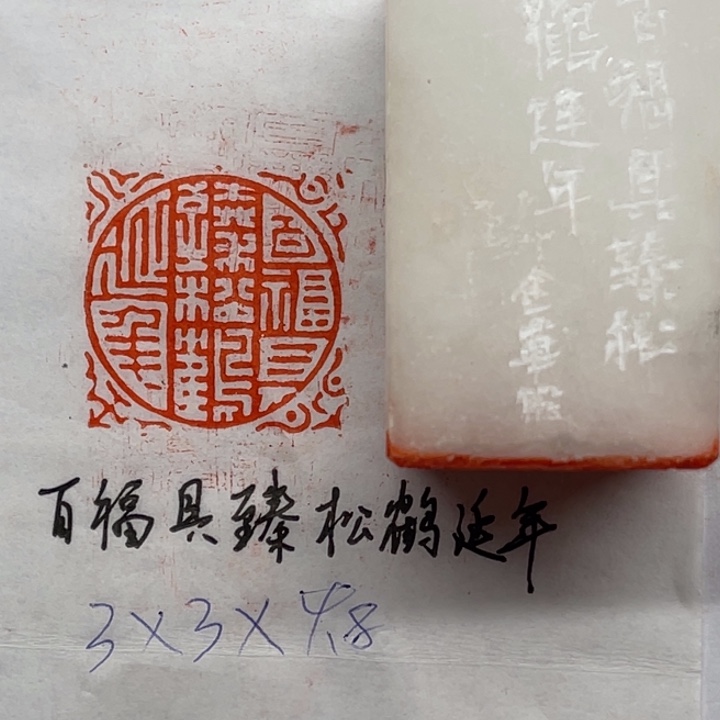 百福具
臻松鶴
延年
百福具臻松
鶴延年
百福具臻松鹤延年
3X3X4.8